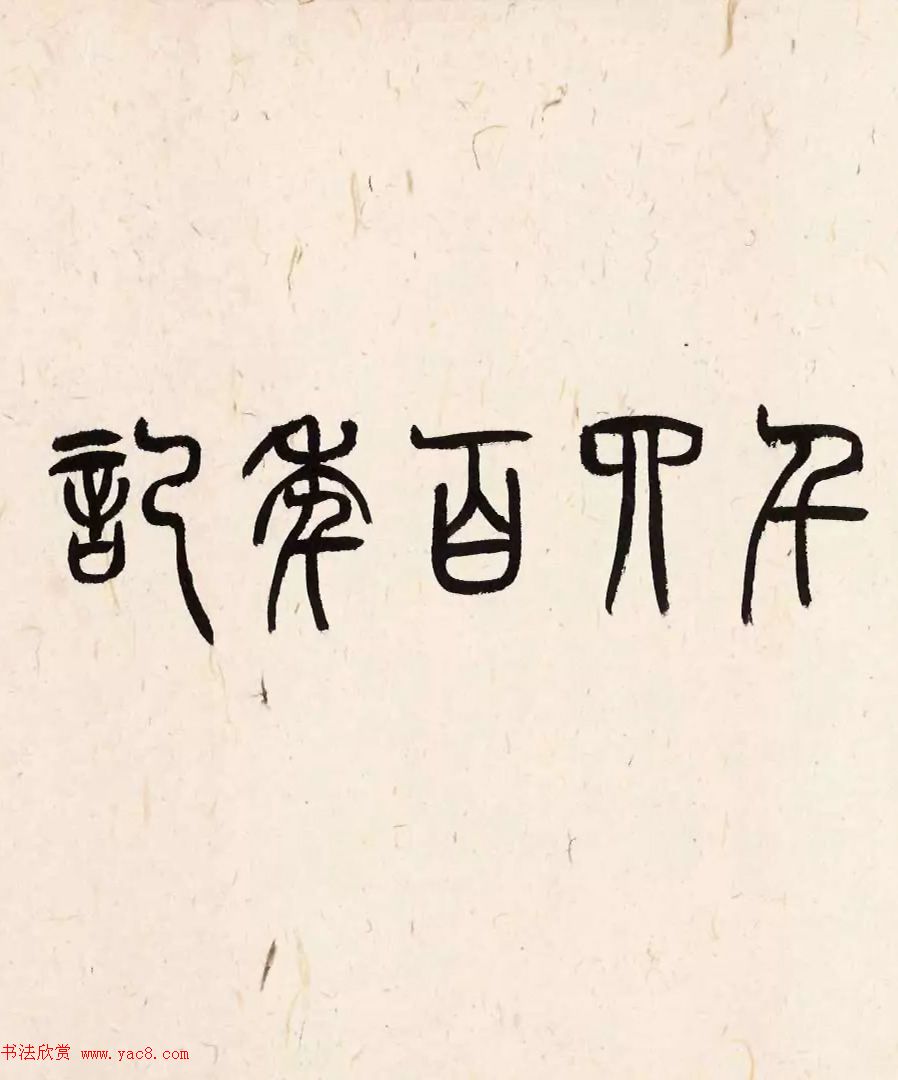 千四百年記
书法欣赏 www.yac8.com